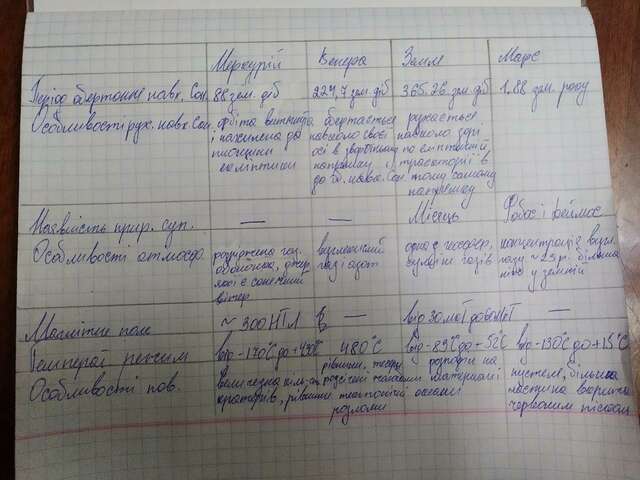 Меркурій Венера Земля Марс
Період обертання навк. Сон. 88 зем. діб 224,7 зем. діб 365.26 зем. діб 1.88 зем. року
Особливості рух. навк. Сон. орбіта витягнута обертається рухається
і нахилена до навколо своєї навколо зорі
площини осі в зворотному по еліптичній
екліптики напрямку траєкторії в
до об. навк. Сон тому самому
напрямку
Наявність прир. суп. — — Місяць Фобос і Деймос
Особливості атмосф. розріджена газ. вуглекислий одна з геосфер, концентрація вугл.
оболонка, джер газ і азот суміш газів газу більша
якої є сонячний ніж у земній
вітер
Магнітне поле ~ 300 НТл — від 30 мкТ до —
Темпера. режим від -170°С до +430°С 480°С від -89°С до -52°С від -130°С до +15°С
Особливості пов. величезна кіл. рівнини, розподіл на є
кратерів, рівнини розсічені материки і пустел, більша
тектонічні океани частина вкрита
розломи червоним піском